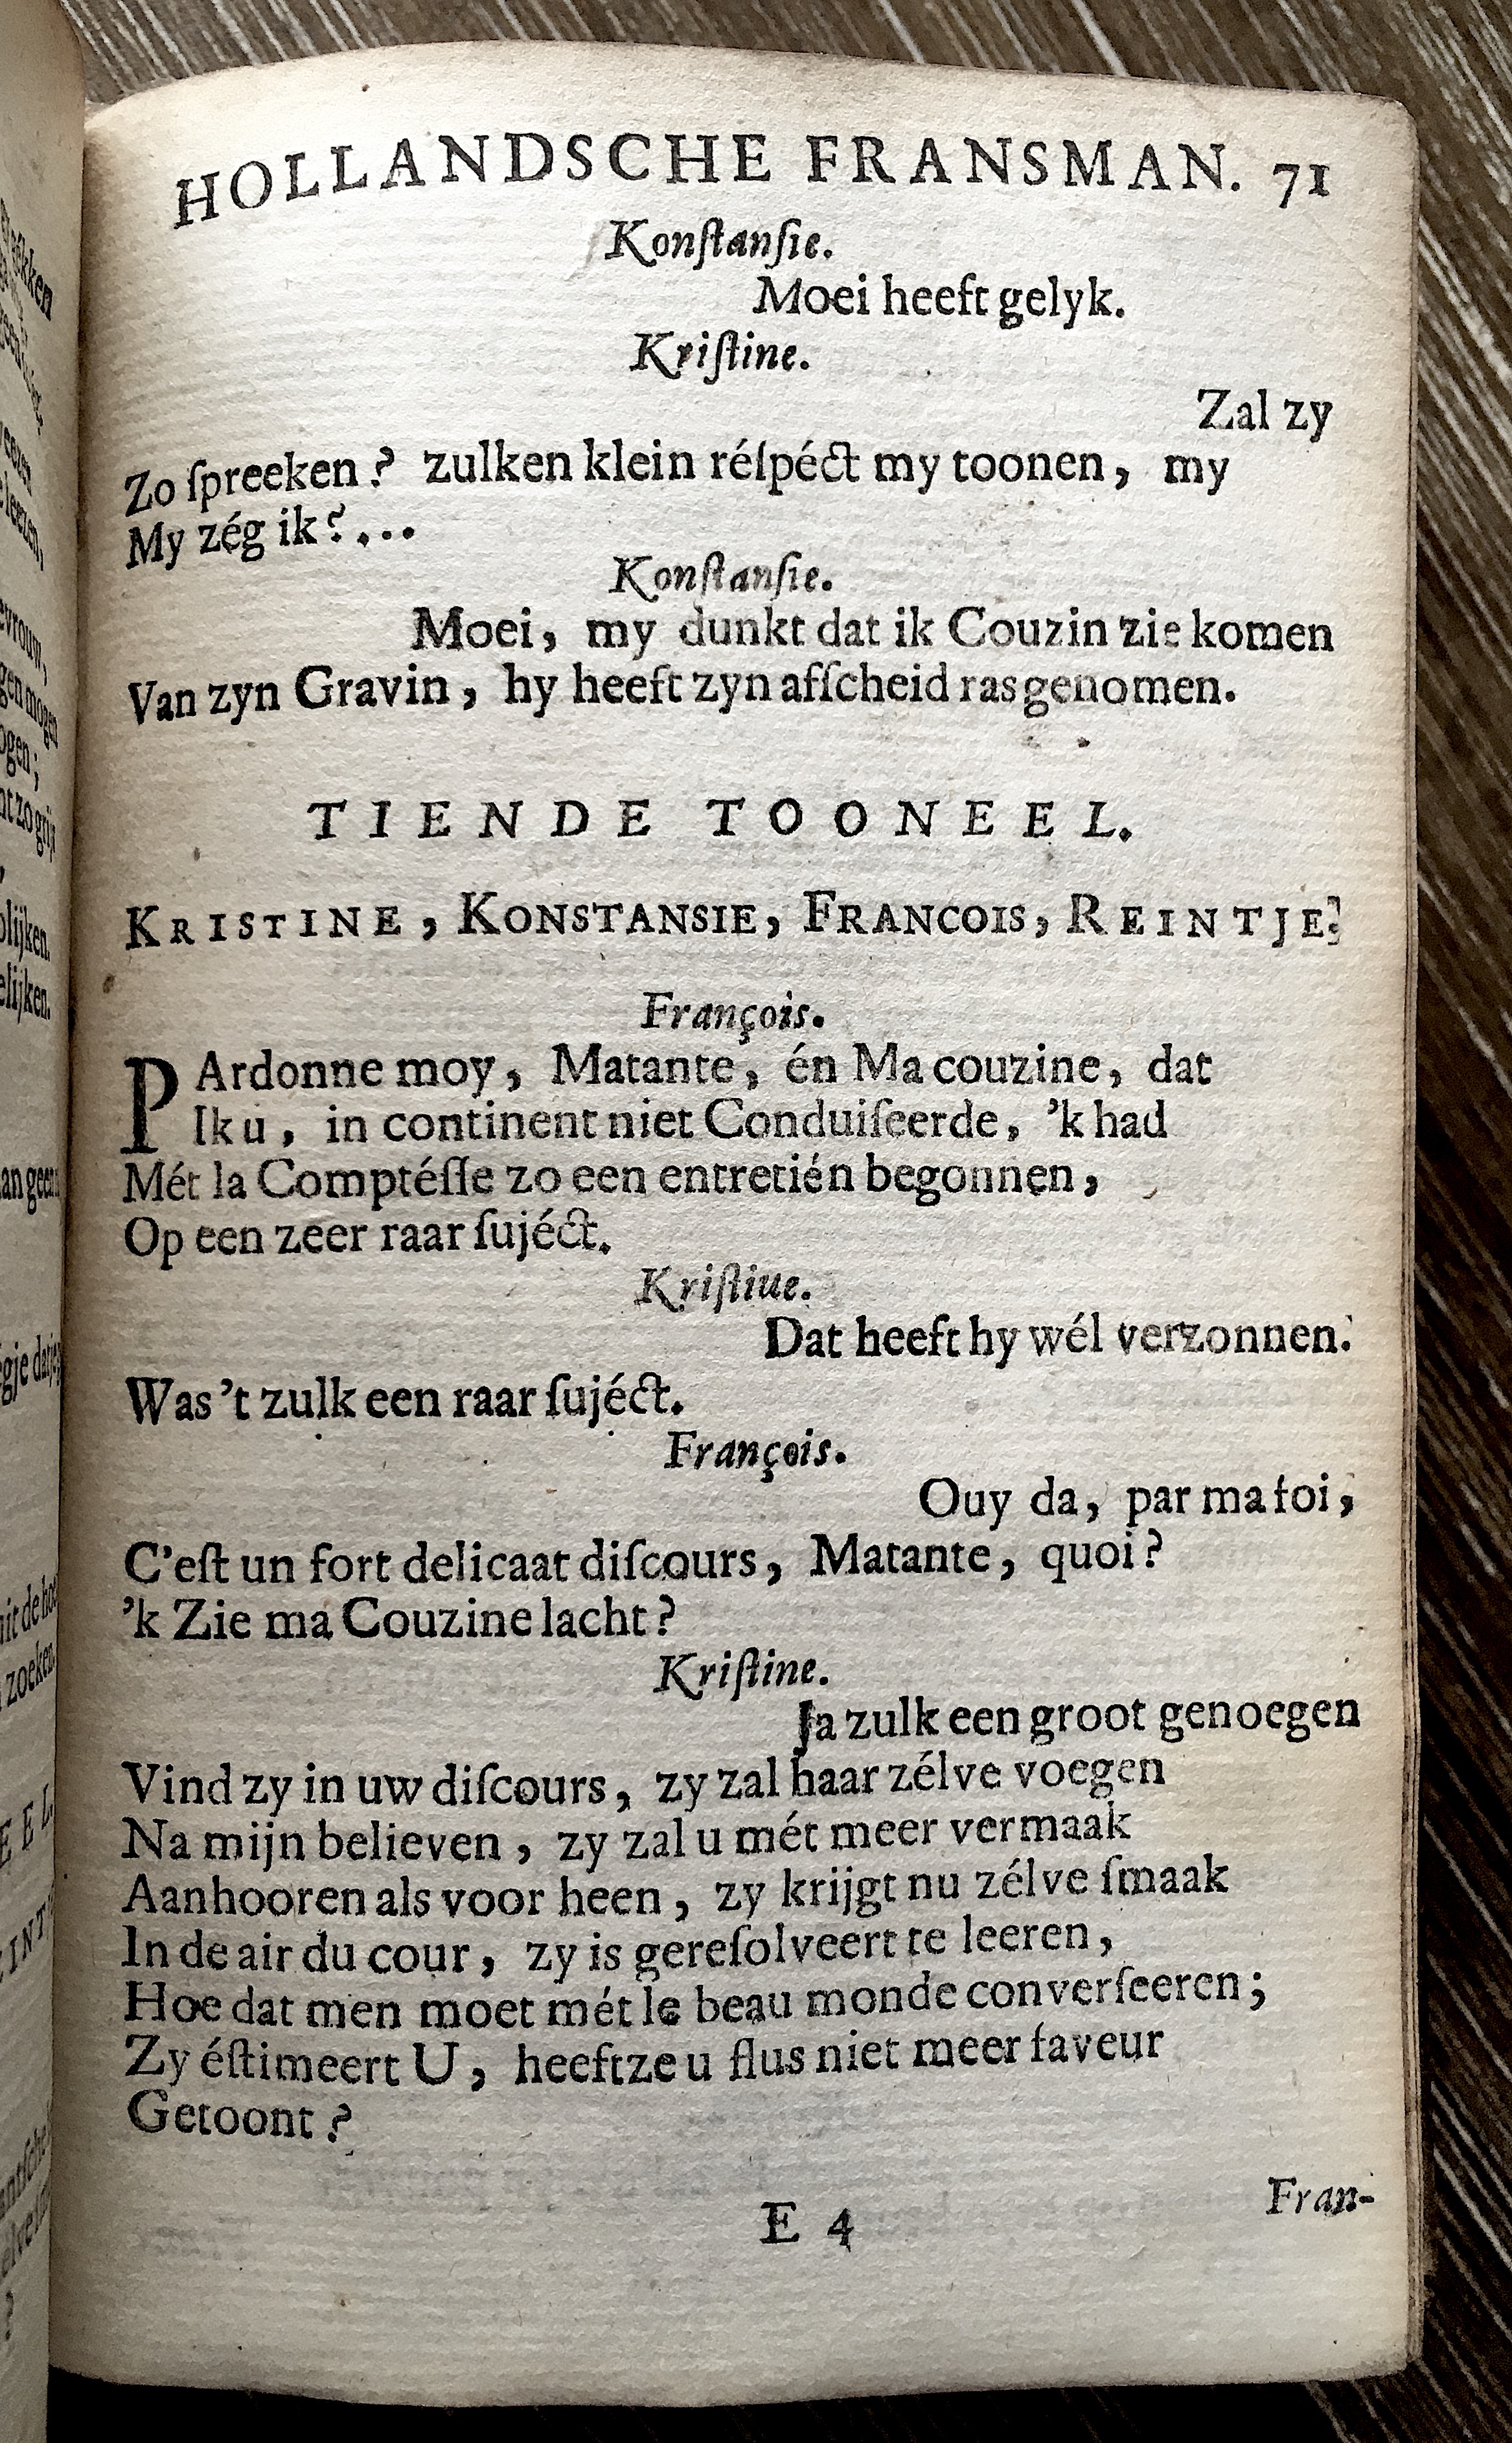 HOLLANDSCHE FRANSMAN. 71
Konſtanſie.
Moei heeft gelyk.
Kriſtine.
Zal zy
Zo ſpreeken? zulken klein réſpéct my toonen, my
My zég ik?...
Konſtanſie.
Moei, my dunkt dat ik Couzin zie komen
Van zyn Gravin, hy heeft zyn afſcheid ras genomen.
TIENDE TOONEEL.
KRISTINE, KONSTANSIE, FRANCOIS, REINTJE.
François.
PArdonne moy, Matante, én Ma couzine, dat
Ik u, in continent niet Conduiſeerde, 'k had
Mét la Comptéſſe zo een entretién begonnen,
Op een zeer raar ſujéct.
Kriſtiue.
Dat heeft hy wél verzonnen.
Was 't zulk een raar ſujéct.
François.
Ouy da, par ma foi,
C'eſt un fort delicaat diſcours, Matante, quoi?
'k Zie ma Couzine lacht?
Kriſtine.
Ja zulk een groot genoegen
Vind zy in uw diſcours, zy zal haar zélve voegen
Na mijn believen, zy zal u mét meer vermaak
Aanhooren als voor heen, zy krijgt nu zélve ſmaak
In de air du cour, zy is gereſolveert te leeren,
Hoe dat men moet mét le beau monde converſeeren;
Zy éſtimeert U, heeft ze u flus niet meer faveur
Getoont?
E 4
Fran-